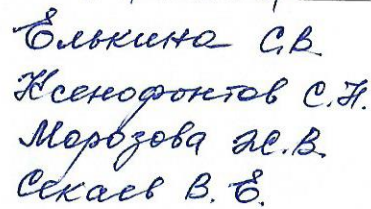 Елькина С.В.
Ксенофонтов С.Н.
Морозова Ж.В.
Секаев В.Е.